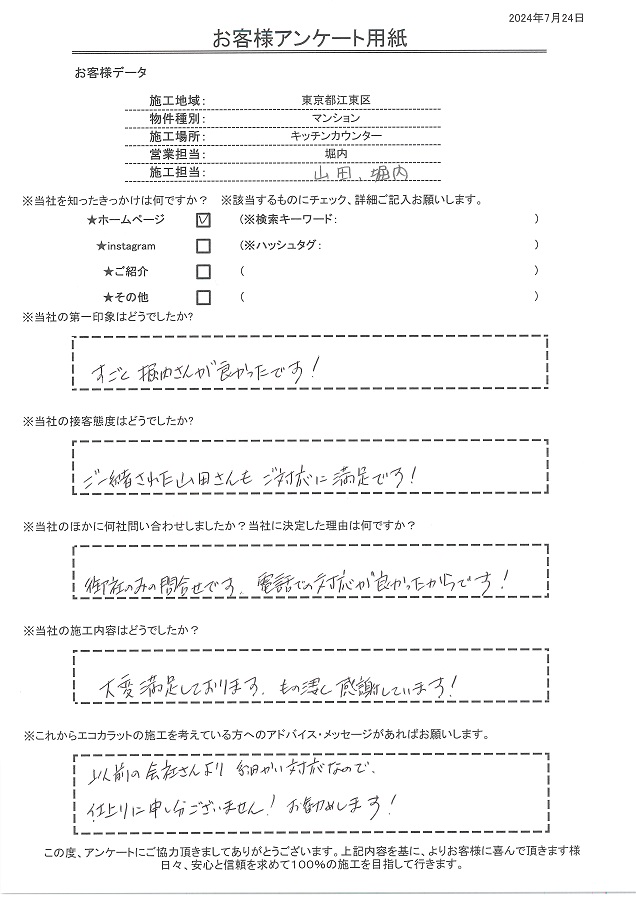 2024年7月24日
お客様アンケート用紙
お客様データ
施工地域： 東京都江東区
物件種別： マンション
施工場所： キッチンカウンター
営業担当： 堀内
施工担当： 山田、堀内
※当社を知ったきっかけは何ですか？ ※該当するものにチェック、詳細ご記入お願いします。
★ホームページ ☑ （※検索キーワード： ）
★instagram □ （※ハッシュタグ： ）
★ご紹介 □ （ ）
★その他 □ （ ）
※当社の第一印象はどうでしたか?
すごく堀内さんが良かったです！
※当社の接客態度はどうでしたか?
ご一緒された山田さんもご対応に満足です！
※当社のほかに何社問い合わせしましたか？当社に決定した理由は何ですか？
御社のみの問合せです。電話での対応が良かったからです！
※当社の施工内容はどうでしたか？
大変満足しております。もの凄く感謝しています！
※これからエコカラットの施工を考えている方へのアドバイス・メッセージがあればお願いします。
以前の会社さんより細かい対応なので、
仕上りに申し分ございません！お勧めします！
この度、アンケートにご協力頂きましてありがとうございます。上記内容を基に、よりお客様に喜んで頂きます様
日々、安心と信頼を求めて100％の施工を目指して行きます。